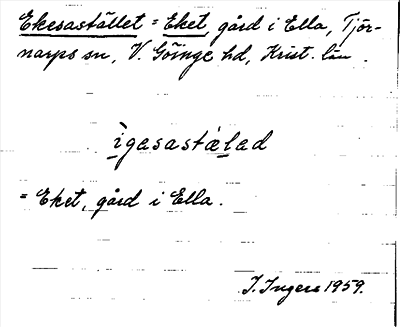 Ekesastället = Eket, gård i Ella, Tjör-
narps sn, V. Göinge hd, Krist. län.
ìgasastàlad
= Eket, gård i Ella.
I. Ingers 1959.